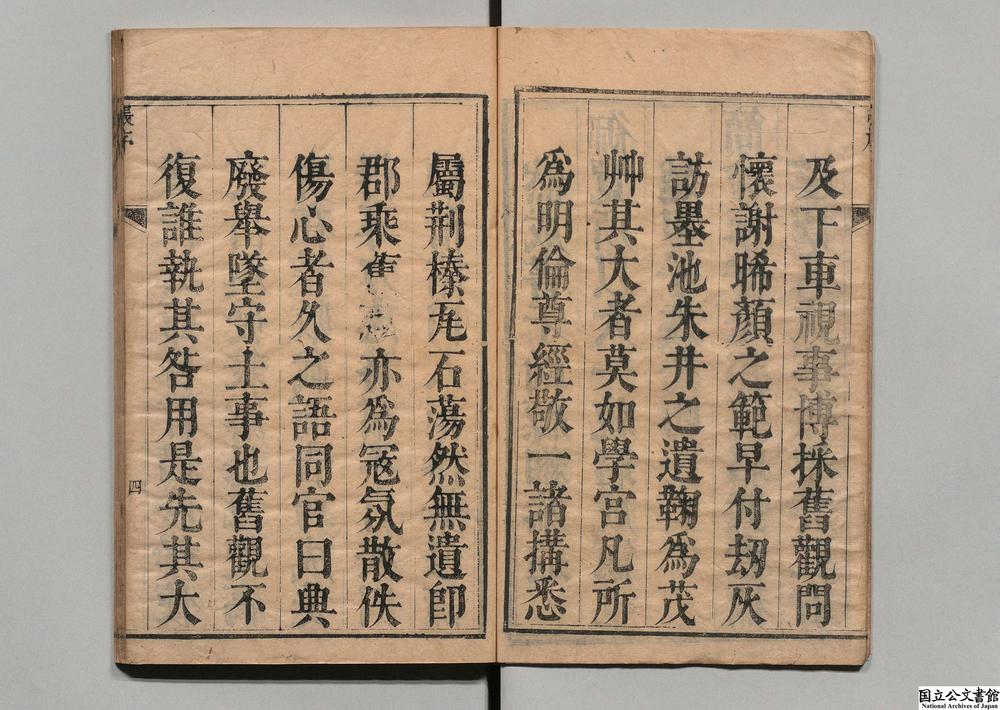 及下車視事博採舊觀問
懷謝晞顏之範早付刼灰
訪墨池朱井之遺鞠爲茂
艸其大者莫如學宮凡所
爲明倫尊經敬一諸搆悉
屬荆榛瓦石蕩然無遺卽
郡乗舊亦爲冦氛散佚
傷心者久之語同官曰典
廢舉墜守土事也舊觀不
復誰執其咎用是先其大
張序
四
国立公文書館
National Archives of Japan